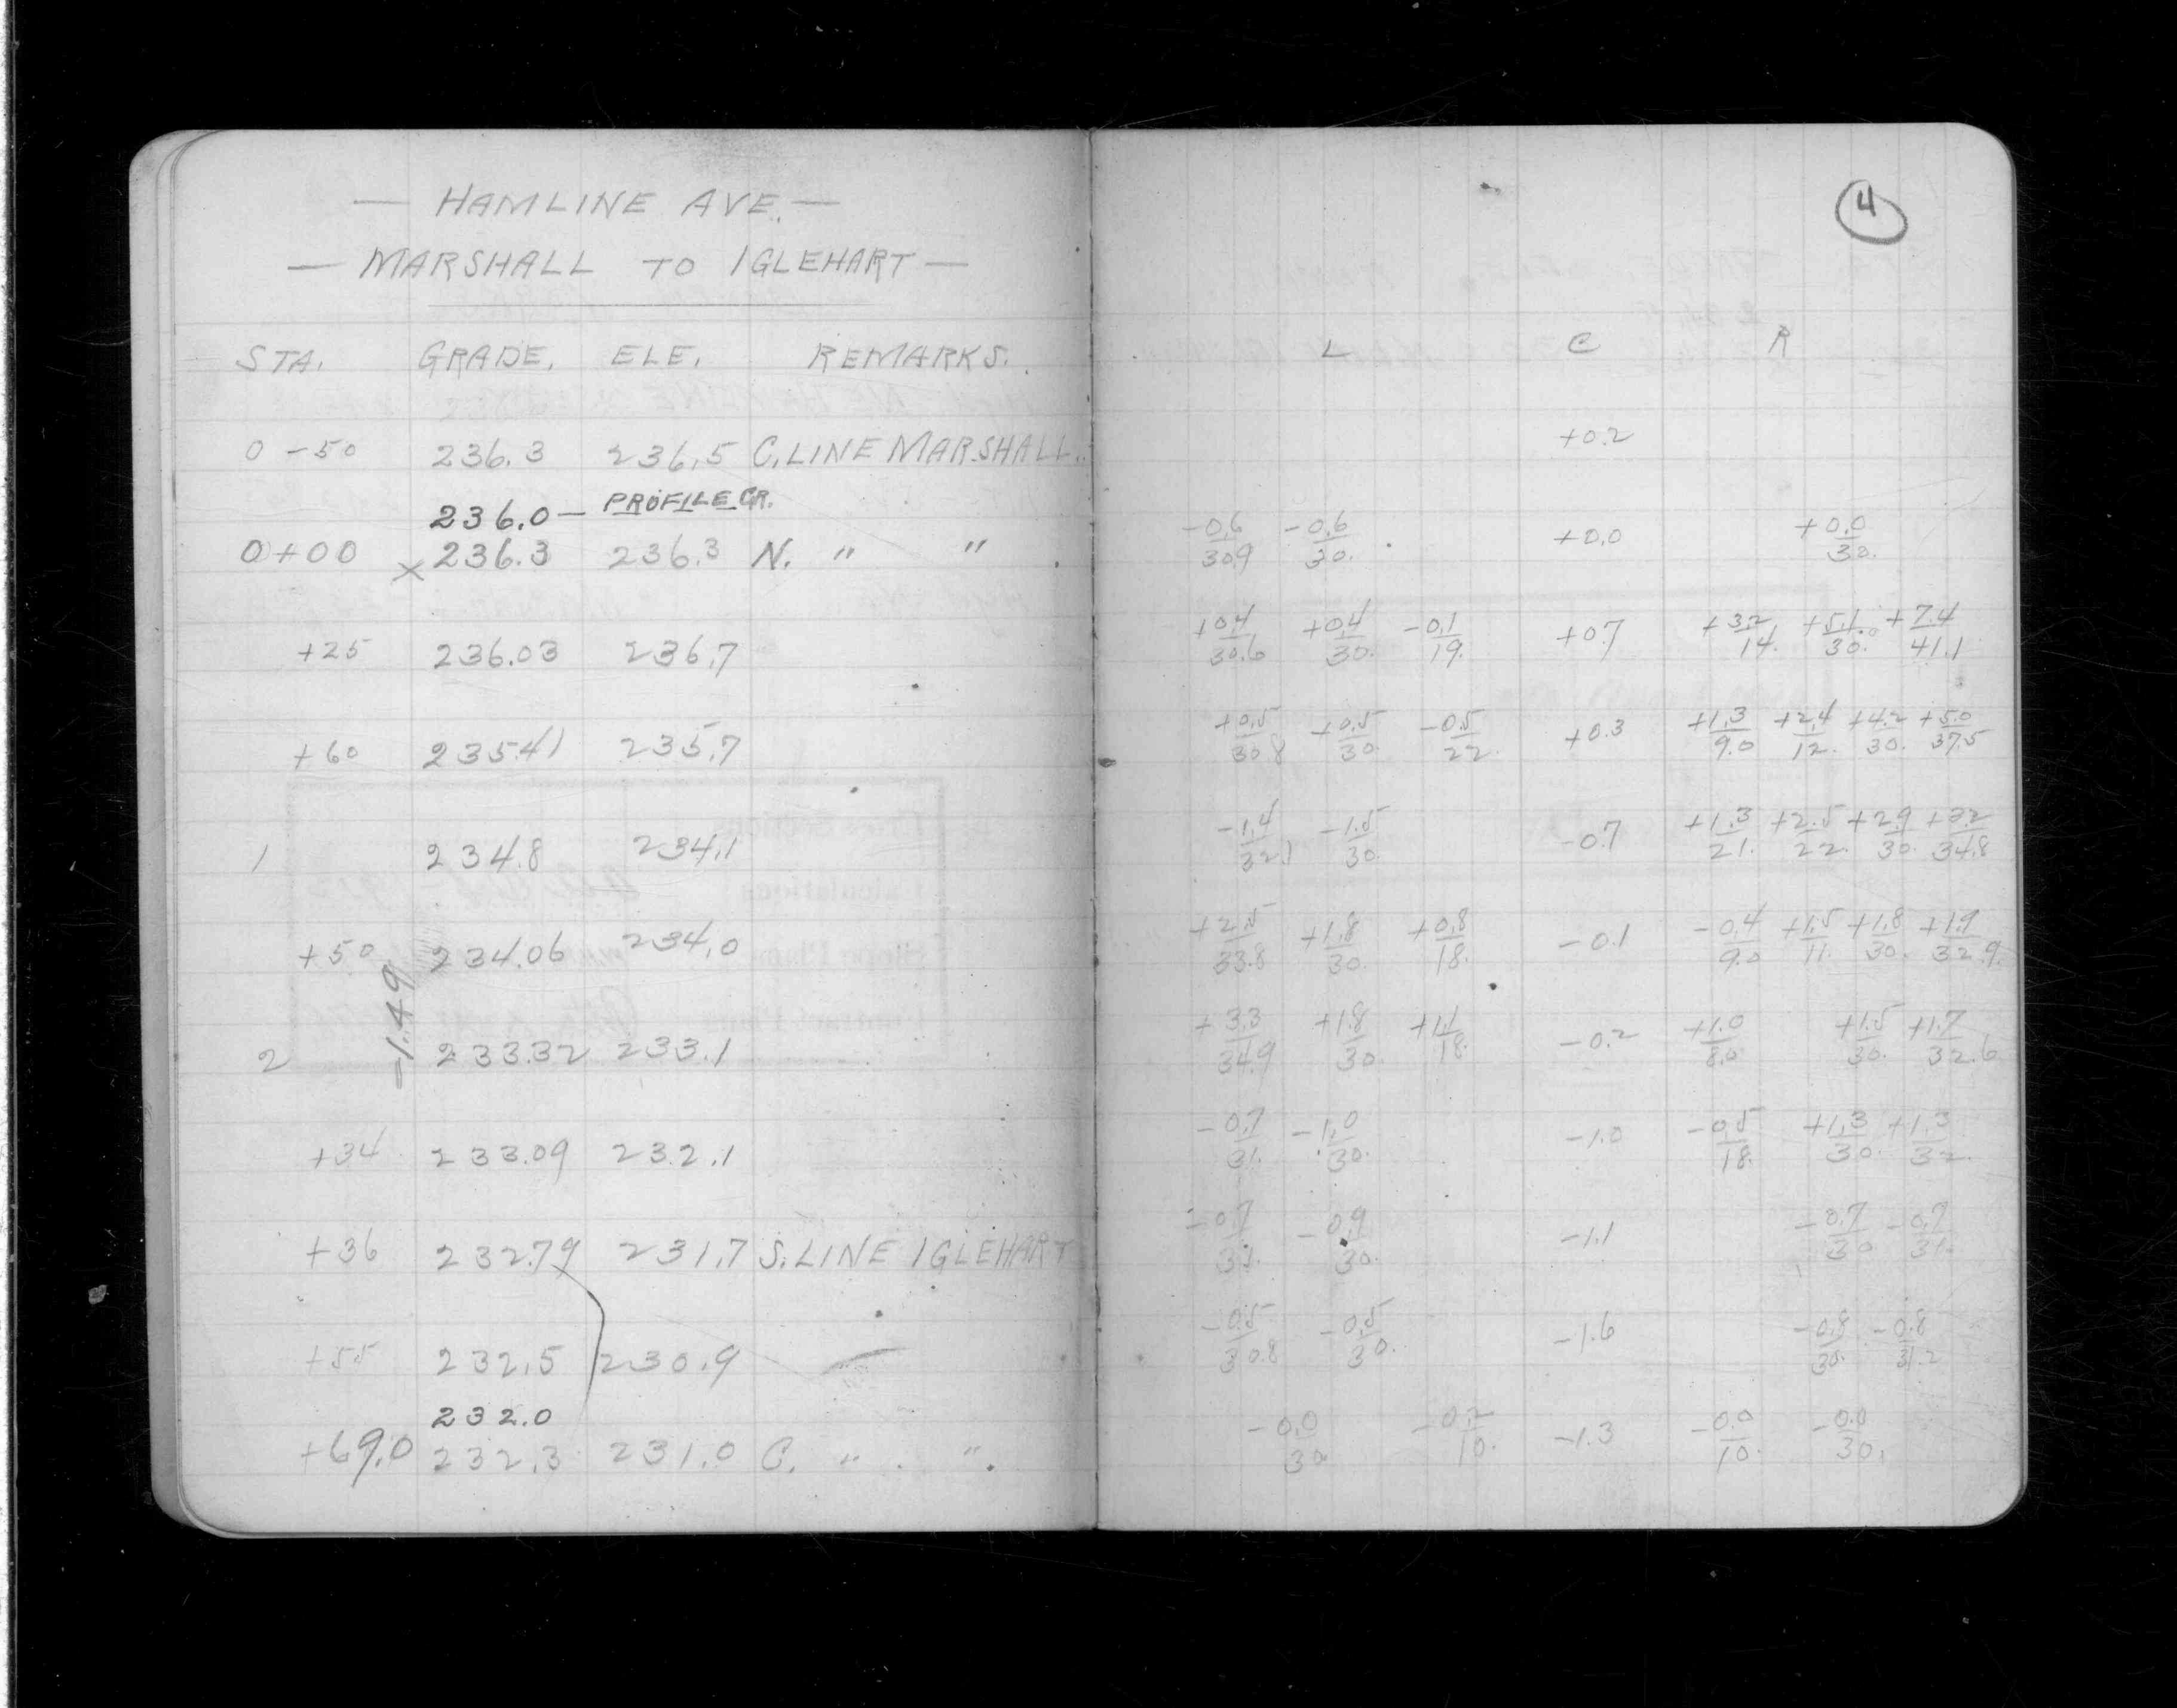 — HAMLINE AVE. —
— MARSHALL TO IGLEHART —
STA. GRADE. ELE. REMARKS.
0-50 236.3 236.5 C. LINE MARSHALL.
236.0 — PROFILE GR.
0+00 x 236.3 236.3 N. " "
+25 236.03 236.7
+60 235.41 235.7
1 234.8 234.1
+50 234.06 234.0
-1.49
2 233.32 233.1
+34 233.09 232.1
+36 232.79 231.7 S. LINE IGLEHART
+55 232.5 230.9
232.0
+69.0 232.3 231.0 C. " "
4
L C R
+0.2
-0.6/30.9 -0.6/30. +0.0 +0.0/30.
+0.4/30.6 +0.4/30. -0.1/19. +0.7 +3.2/14. +5.1/30. +7.4/41.1
+0.5/30.8 +0.5/30. -0.5/22. +0.3 +1.3/9.0 +2.4/12. +4.2/30. +5.0/37.5
-1.4/32.1 -1.5/30. -0.7 +1.3/21. +2.5/22. +2.9/30. +3.2/34.8
+2.5/33.8 +1.8/30. +0.8/18. -0.1 -0.4/9.0 +1.5/11. +1.8/30. +1.9/32.9
+3.3/34.9 +1.8/30. +1.1/18. -0.2 +1.0/8.0 +1.5/30. +1.7/32.6
-0.7/31. -1.0/30. -1.0 -0.5/18. +1.3/30. +1.3/32.
-0.7/31. -0.9/30. -1.1 -0.7/30 -0.7/31.
-0.5/30.8 -0.5/30. -1.6 -0.8/30. -0.8/31.2
-0.0/30 -0.2/10. -1.3 -0.0/10. -0.0/30.